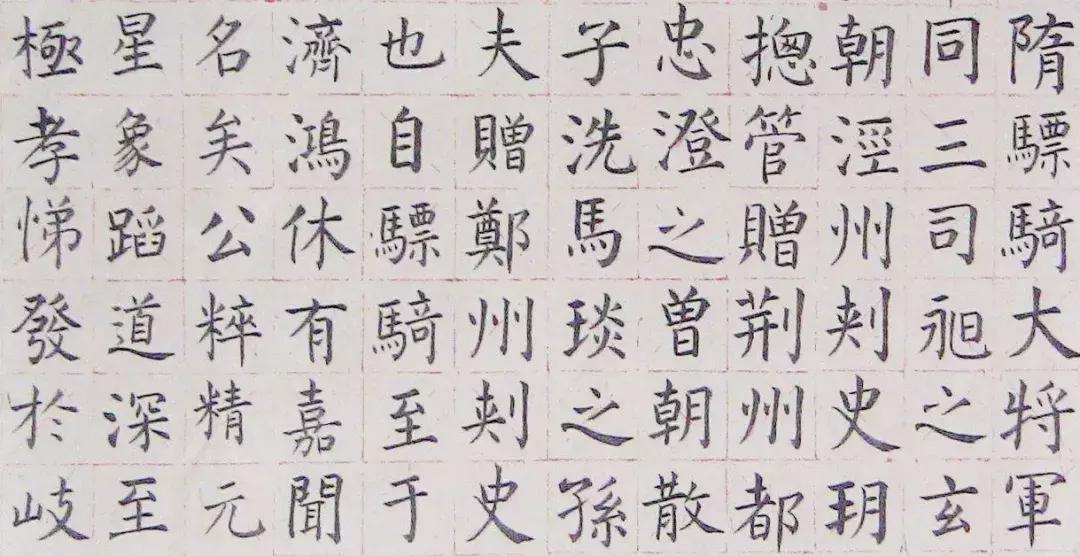 隋驃騎大将軍
同三司䄃之玄
朝涇州刾史玥
摠管贈荆州都
忠澄之曽朝散
子洗馬琰之孫
夫贈鄭州刾史
也自驃騎至于
濟鴻休有嘉聞
名矣公粹精元
星象蹈道深至
極孝悌發於岐